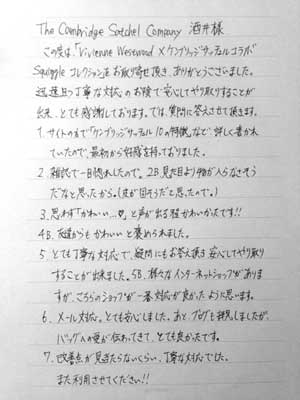 The Cambridge Satchel Company 酒井様
この度は「Vivienne Westwood × ケンブリッジサッチェルコラボ
Squiggle コレクション」をお取り寄せ頂き、ありがとうございました。
迅速且つ丁寧な対応のお陰で安心してやり取りすることが
出来、とても感謝しております。では、質問に答えさせて頂きます。
1. サイトの方で「ケンブリッジサッチェル 10の特徴」など詳しく書かれ
ていたので、最初から好感を持っておりました。
2. 雑誌で一目惚れしたので。2B. 見た目より物が入らなさそう
だなと思ったから。(皮が固そうだと思ったので。)
3. 思わず「かわいい…♡」と声が出る程かわいかったです!!
4B. 友達からも かわいい と褒められました。
5. とても丁寧な対応で、疑問にもお答え頂き 安心してやり取り
することが出来ました。5B. 様々なインターネットショップがありま
すが、こちらのショップが一番対応が良かったように思います。
6. メール対応。とても安心しました。あと、ブログも拝見しましたが、
バッグへの愛が伝わってきて、とても良かったです。
7. 改善点が見当たらないくらい、丁寧な対応でした。
また利用させてください!!